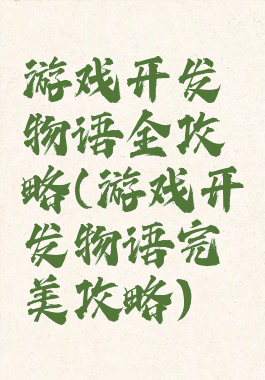 游戏开发
物语全攻
略(游戏开
发物语完
美攻略)